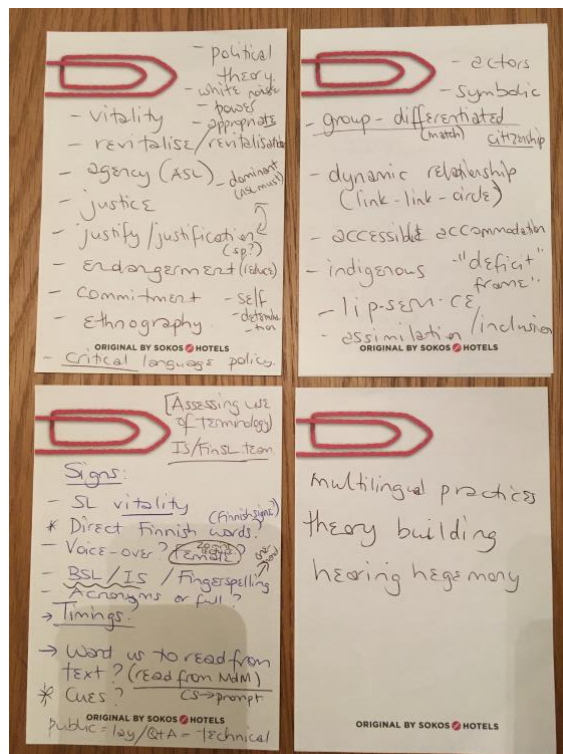 - political theory
- white noise
- power
- appropriate
- vitality
- revitalise/revitalisation
- agency (ASL)
- dominant
(ASL must)
- justice
- justify/justification
(sp?)
- endangerment (reduce)
- commitment
- self
- determina
tion
- ethnography
ORIGINAL BY SOKOS HOTELS
- Critical language policy.
- actors
- symbolic
- group-differentiated
(match) citizenship
- dynamic relationship
(link-link-circle)
- accessible accommodation
- indigenous
- "deficit
frame".
- lip-service
- assimilation/inclusion
ORIGINAL BY SOKOS HOTELS
[Assessing use
of terminology]
IS/FinSL team
Signs:
- SL vitality
(Finnish signs?)
* Direct Finnish words?
- Voice-over? Female?
- BSL/IS / Fingerspelling
- Acronyms or full?
→ Timings.
→ Want us to read from
text? (read from MdM)
* Cues? CS → prompt
ORIGINAL BY SOKOS HOTELS
public = lay/Q+A = technical
multilingual practices
theory building
hearing hegemony
ORIGINAL BY SOKOS HOTELS